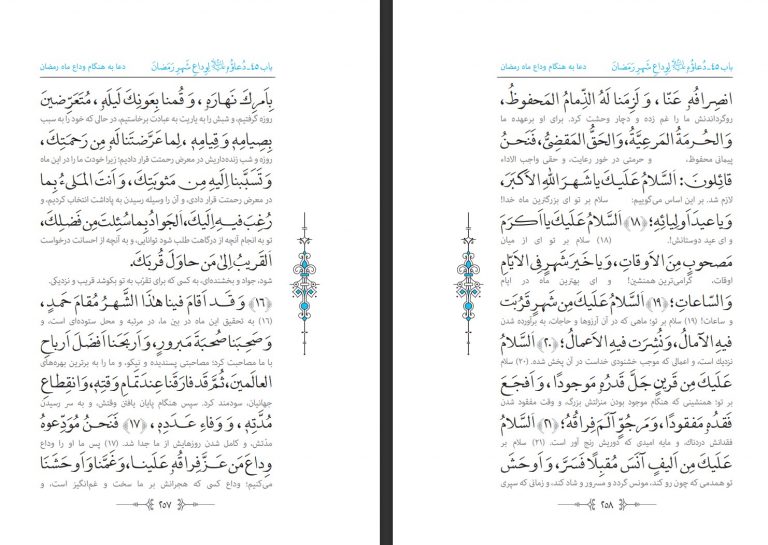 باب ۴۵ـ دُعاؤُهُ لِوَداعِ شَهرِ رَمَضانَ
دعا به هنگام وداع ماه رمضان
بِاَمرِكَ نَهارَهُ ، وَ قُمنا بِعَونِكَ لَيلَهُ ، مُتَعَرِّضينَ
روزه گرفتیم، و شبش را به یاریت به عبادت برخاستیم، در حالی که خود را به سبب
بِصِيامِهِ وَ قِيامِهِ ، لِما عَرَّضتَنا لَهُ مِن رَحمَتِكَ ،
روزه و شب زنده‌داریش در معرض رحمتت قرار دادیم؛ زیرا خودت ما را در این ماه
وَ تَسَبَّبنا اِلَيهِ مِن مَثوبَتِكَ ، وَ اَنتَ المَلىءُ بِما
در معرض رحمتت قرار دادی، و آن را وسیله رسیدن به پاداشت انتخاب کردیم، و
رُغِبَ فيهِ اِلَيكَ ، اَلجَوادُ بِما سُئِلتَ مِن فَضلِكَ ،
تو به انجام آنچه از درگاهت طلب شود توانایی، و به آنچه از احسانت درخواست
اَلقَريبُ اِلىٰ مَن حاوَلَ قُربَكَ .
شود، جواد و بخشنده‌ای، به کسی که برای تقرّب به تو بکوشد قریب و نزدیکی.
﴿۱۶﴾ وَ قَد اَقامَ فينا هٰذَا الشَّهرُ مُقامَ حَمدٍ ،
(۱۶) به تحقیق این ماه در بین ما، در مرتبه و محل ستوده‌ای است، و
وَ صَحِبَنا صُحبَةَ مَبرورٍ ، وَ اَربَحَنا اَفضَلَ اَرباحِ
با ما مصاحبت کرد؛ مصاحبتی پسندیده و نیکو، و ما را به برترین بهره‌های
العالَمينَ ، ثُمَّ قَد فارَقَنا عِندَ تَمامِ وَقتِهِ ، وَ انقِطاعِ
جهانیان، سودمند کرد. سپس هنگام پایان یافتن وقتش، و به سر رسیدن
مُدَّتِهِ ، وَ وَفاءِ عَدَدِهِ ، ﴿۱۷﴾ فَنَحنُ مُوَدِّعوهُ
مدّتش، و کامل شدن روزهایش از ما جدا شد. (۱۷) پس ما او را وداع
وِداعَ مَن عَزَّ فِراقُهُ عَلَينا ، وَ غَمَّنا وَ اَوحَشَنَا
می‌کنیم؛ وداع کسی که هجرانش بر ما سخت و غم‌انگیز است، و
۲۵۷
باب ۴۵ـ دُعاؤُهُ لِوَداعِ شَهرِ رَمَضانَ
دعا به هنگام وداع ماه رمضان
انصِرافُهُ عَنّا ، وَ لَزِمَنا لَهُ الذِّمامُ المَحفوظُ ،
روگرداندنش ما را غم زده و دچار وحشت کرد. برای او برعهده ما
وَ الحُرمَةُ المَرعِيَّةُ ، وَ الحَقُّ المَقضِىُّ ، فَنَحنُ
پیمانی محفوظ، و حرمتی در خور رعایت، و حقی واجب الاداء
قائِلونَ : اَلسَّلامُ عَلَيكَ يا شَهرَ اللهِ الاَكبَرَ ،
لازم شد. بر این اساس می‌گوییم: سلام بر تو ای بزرگترین ماه خدا!
وَ يا عيدَ اَولِيائِهِ ؛ ﴿۱۸﴾ اَلسَّلامُ عَلَيكَ يا اَكرَمَ
و ای عید دوستانش!. (۱۸) سلام بر تو ای از میان
مَصحوبٍ مِنَ الاَوقاتِ ، وَ يا خَيرَ شَهرٍ فِى الاَيّامِ
اوقات، گرامی‌ترین همنشین! و ای بهترین ماه در ایام
وَ السّاعاتِ ؛ ﴿۱۹﴾ اَلسَّلامُ عَلَيكَ مِن شَهرٍ قَرُبَت
و ساعات! (۱۹) سلام بر تو؛ ماهی که در آن آرزوها و حاجات، به برآورده شدن
فيهِ الآمالُ ، وَ نُشِرَت فيهِ الاَعمالُ ؛ ﴿۲۰﴾ اَلسَّلامُ
نزدیک است، و اعمالی که موجب خشنودی خداست در آن پخش شده. (۲۰) سلام
عَلَيكَ مِن قَرينٍ جَلَّ قَدرُهُ مَوجودًا ، وَ اَفجَعَ
بر تو؛ همنشینی که هنگام موجود بودن منزلتش بزرگ، و وقت مفقود شدن
فَقدُهُ مَفقودًا ، وَ مَرجُوٍّ آلَمَ فِراقُهُ ؛ ﴿۲۱﴾ اَلسَّلامُ
فقدانش دردناک، و مایه امیدی که دوریش رنج آور است. (۲۱) سلام بر
عَلَيكَ مِن اَليفٍ آنَسَ مُقبِلًا فَسَرَّ ، وَ اَوحَشَ
تو همدمی که چون رو کند، مونس گردد و مسرور و شاد کند، و زمانی که سپری
۲۵۸